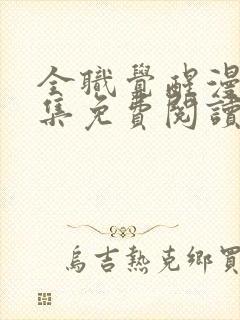 全職覺醒漫
集免費閱讀
烏吉熱克鄉買